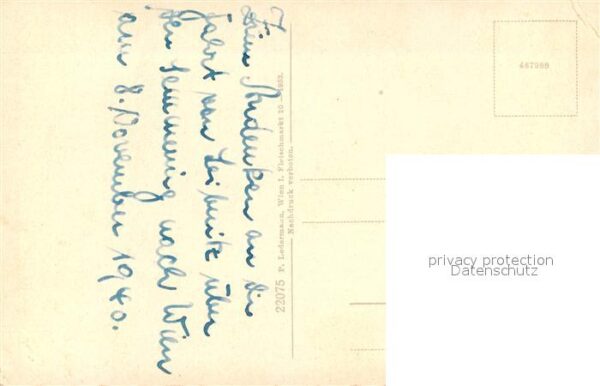 Zum Andenken an die
Fahrt von Leibnitz über
den Semmering nach Wien
am 8. November 1940.
22075 P. Ledermann, Wien I, Fleischmarkt 10 — 1933.
Nachdruck verboten.
467980
privacy protection
Datenschutz